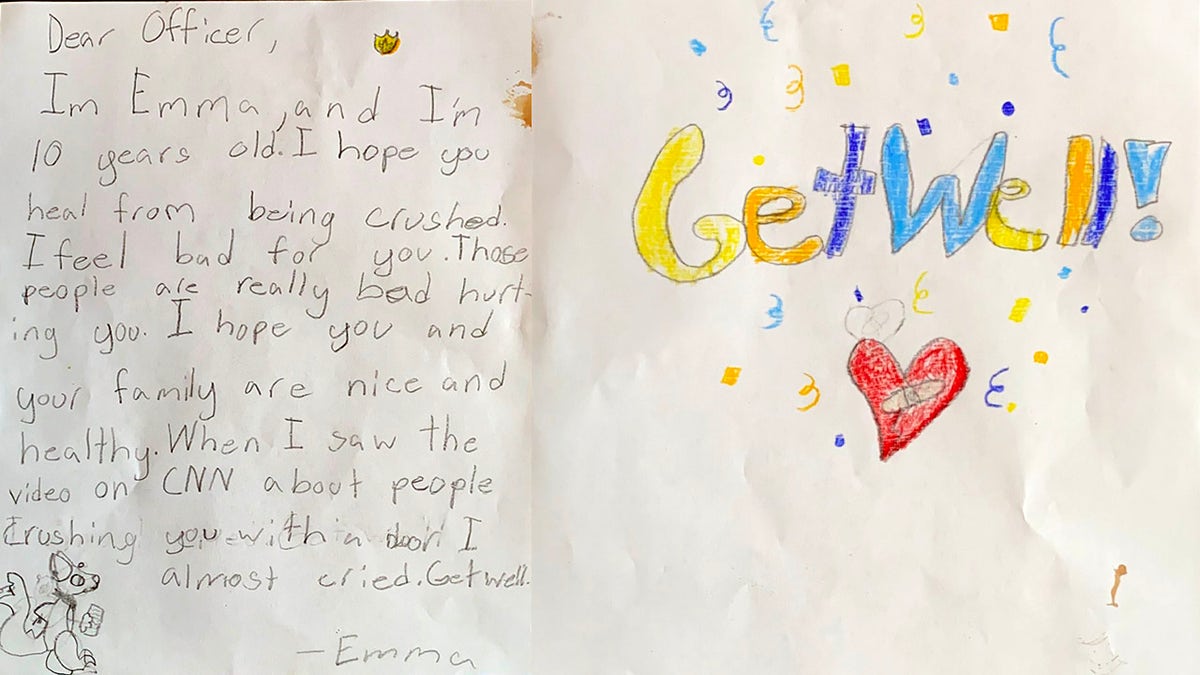 Dear Officer,
Im Emma, and I'm
10 years old. I hope you
heal from being crushed.
I feel bad for you. Those
people are really bad hurt-
ing you. I hope you and
your family are nice and
healthy. When I saw the
video on CNN about people
Crushing you with a door I
almost cried. Get well.
-Emma
Get Well!